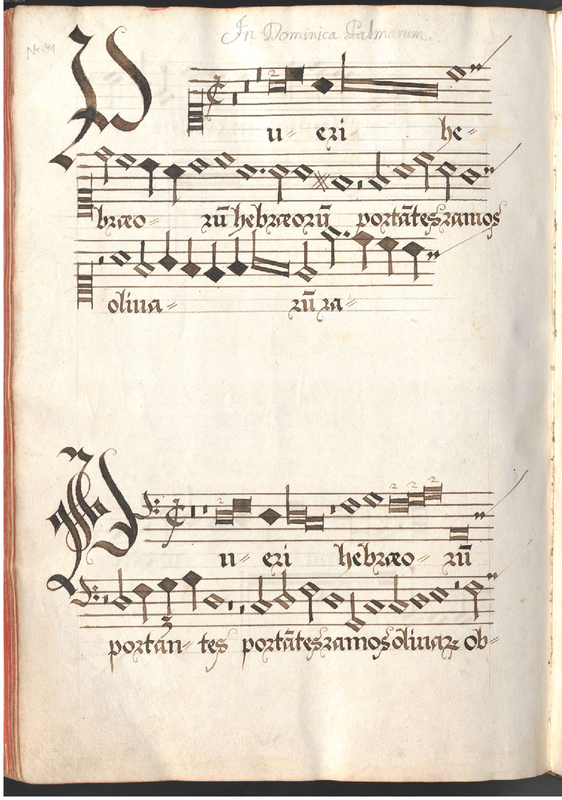 In Dominica Palmarum.
Nr. 41
P
u= eri he=
bræo= rū hebræorū portātes ramos
oliua= rū ra=
P
u= eri hebræo= rū
portan= tes portātes ramos oliuaꝝ ob=